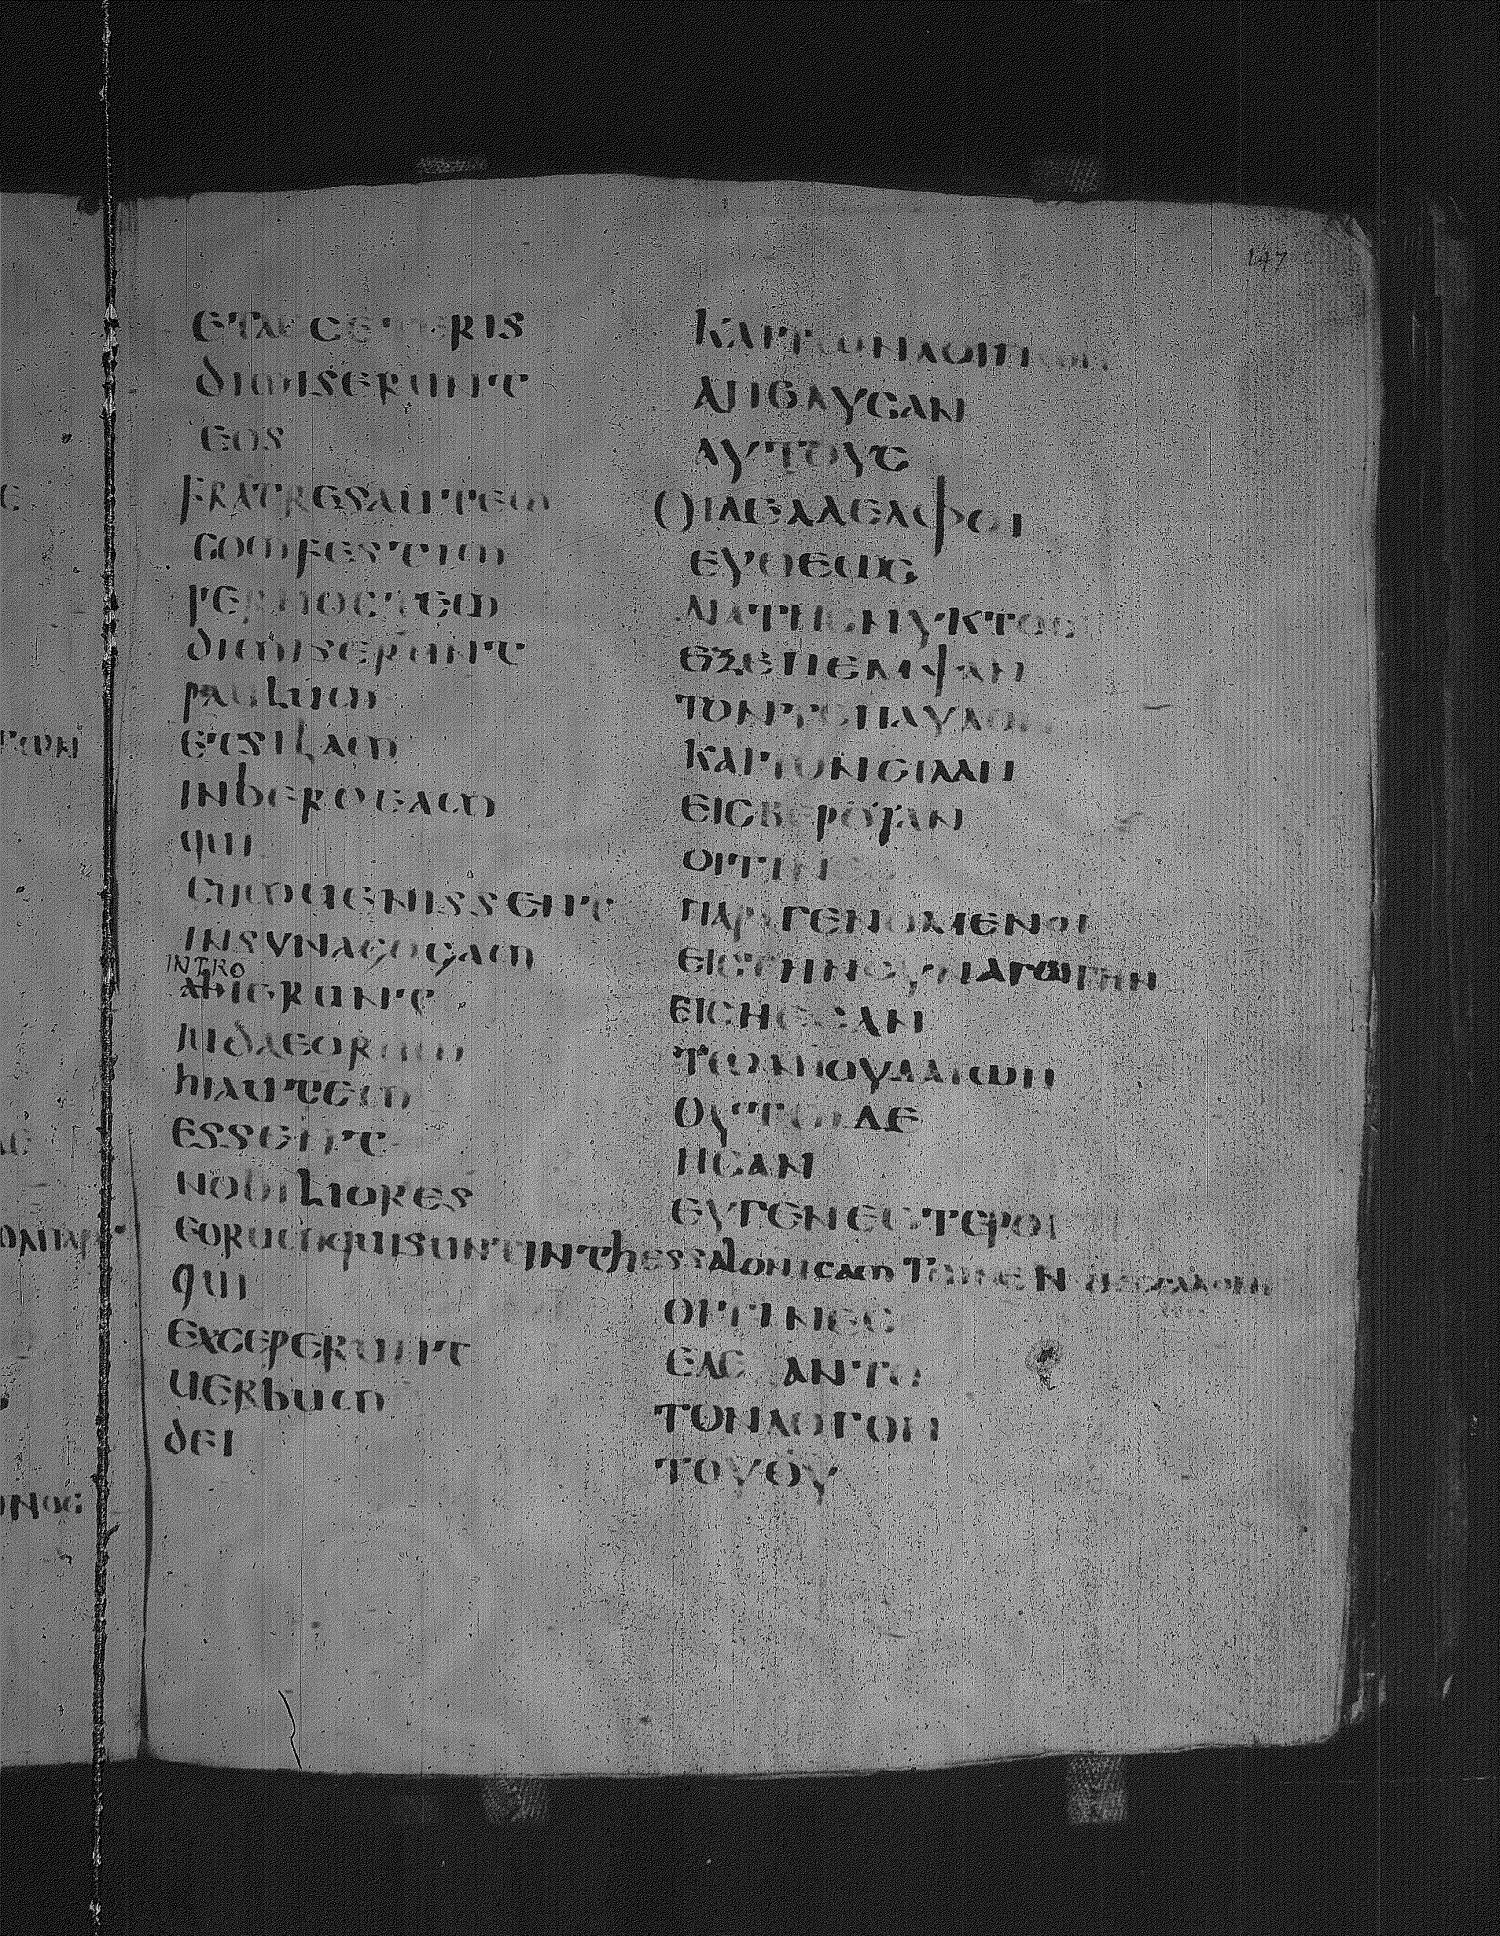 147
ET A CETERIS
DIMISERUNT
EOS
FRATRES AUTEM
COMFESTIM
PER NOCTEM
DIMISERUNT
PAULUM
ET SILAM
IN BEROEAM
QUI
CUM UENISSENT
IN SYNAGOGAM
INTRO
ABIERUNT
IUDAEORUM
HI AUTEM
ESSENT
NOBILIORES
EORUM QUI SUNT IN THESSALONICAM
QUI
EXCEPERUNT
UERBUM
DEI
ΚΑΙ ΤΩΝ ΛΟΙΠΩΝ
ΑΠΕΛΥСΑΝ
ΑΥΤΟΥС
ΟΙ ΔΕ ΑΔΕΛΦΟΙ
ΕΥΘΕΩС
ΔΙΑ ΤΗС ΝΥΚΤΟС
ΕΞΕΠΕΜΨΑΝ
ΤΟΝ ΤΕ ΠΑΥΛΟΝ
ΚΑΙ ΤΟΝ СΙΛΑΝ
ΕΙС ΒΕΡΟΙΑΝ
ΟΙΤΙΝΕС
ΠΑΡΑΓΕΝΟΜΕΝΟΙ
ΕΙС ΤΗΝ СΥΝΑΓΩΓΗΝ
ΕΙСΗΕСΑΝ
ΤΩΝ ΙΟΥΔΑΙΩΝ
ΟΥΤΟΙ ΔΕ
ΗСΑΝ
ΕΥΓΕΝΕСΤΕΡΟΙ
ΤΩΝ ΕΝ ΘΕССΑΛΟΝΙ
ΟΙΤΙΝΕС
ΕΔΕ ΑΝΤΟ
ΤΟΝ ΛΟΓΟΝ
ΤΟΥ ΘΥ